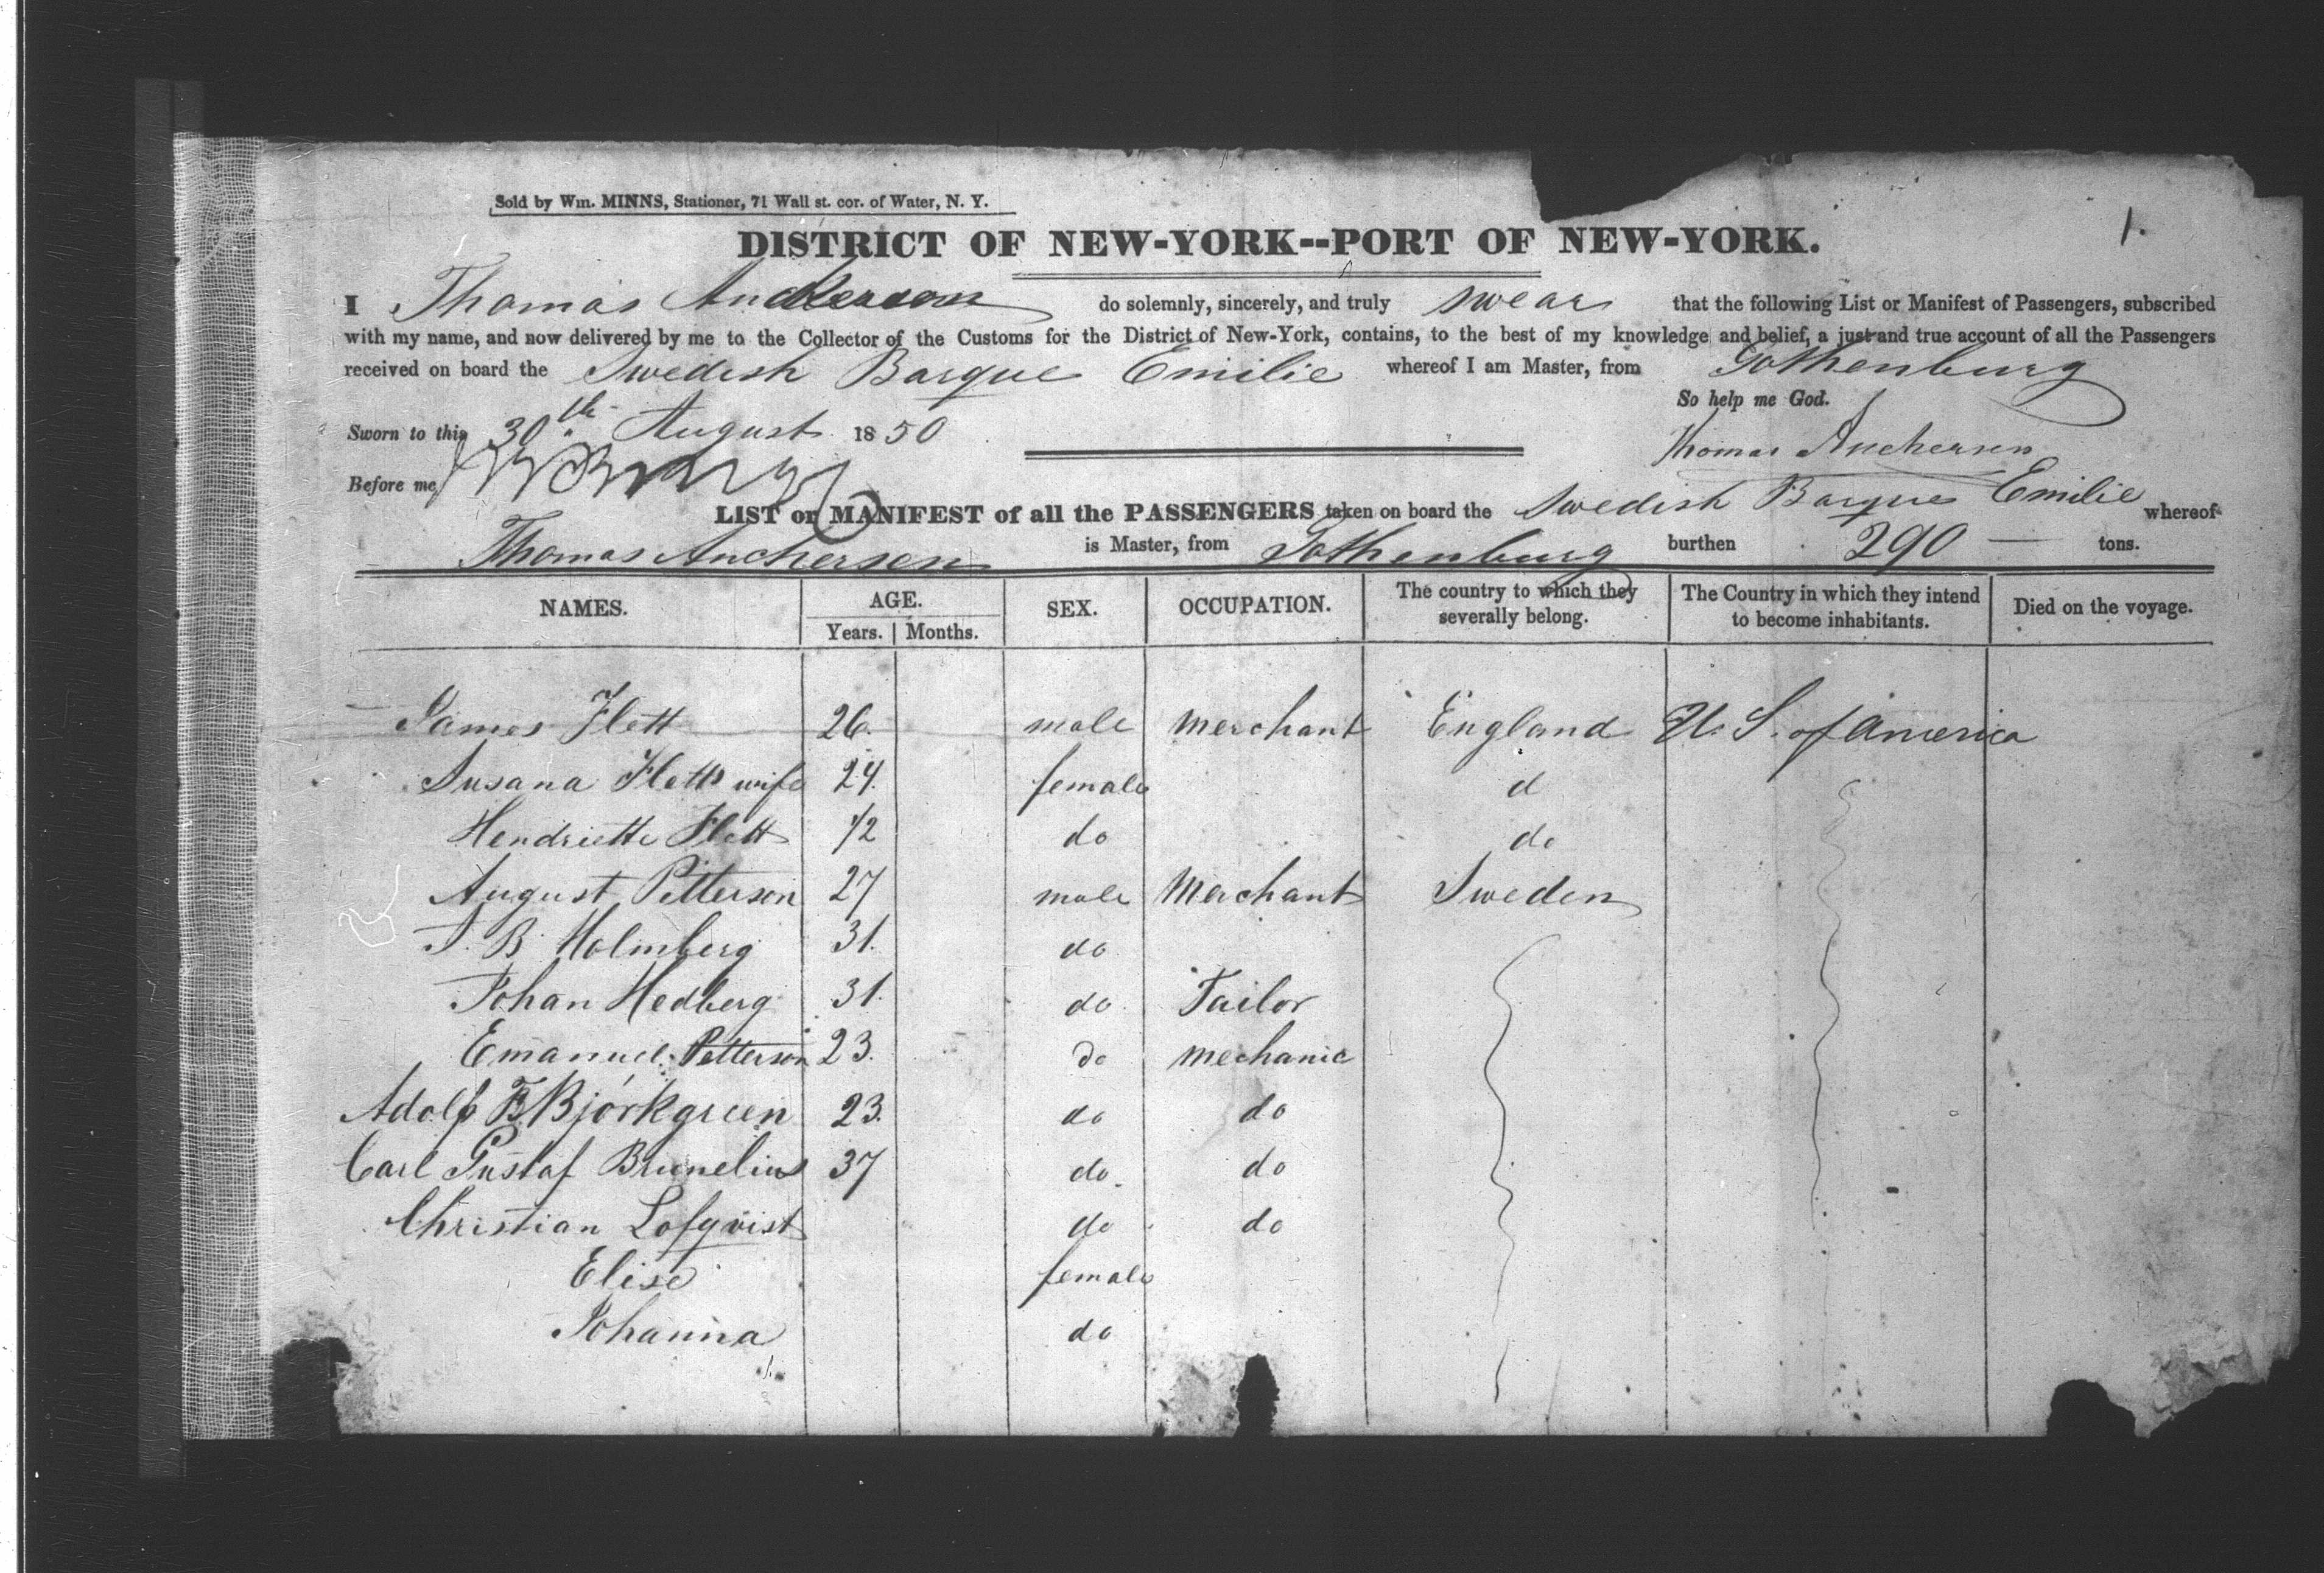 Sold by Wm. MINNS, Stationer, 71 Wall st. cor. of Water, N. Y.
1.
DISTRICT OF NEW-YORK--PORT OF NEW-YORK.
I Thomas Anchersen do solemnly, sincerely, and truly swear that the following List or Manifest of Passengers, subscribed
with my name, and now delivered by me to the Collector of the Customs for the District of New-York, contains, to the best of my knowledge and belief, a just and true account of all the Passengers
received on board the Swedish Barque Emilie whereof I am Master, from Gothenburg
So help me God.
Sworn to this 30th August 1850
Thomas Anchersen
Before me,
LIST or MANIFEST of all the PASSENGERS taken on board the Swedish Barque Emilie whereof
Thomas Anchersen is Master, from Gothenburg burthen 290 — tons.
NAMES. AGE. Years. Months. SEX. OCCUPATION. The country to which they severally belong. The Country in which they intend to become inhabitants. Died on the voyage.
James Flett 26. male Merchant England U. S. of America
Susana Fletts wife 24. female d
Hendriette Flett 1/2 do do
August Petterson 27 male Merchant Sweden
B. Holmberg 31. do
Johan Hedberg 31. do Tailor
Emanuel Petterson 23. do Mechanic
Adolf Bjorkgreen 23. do do
Carl Gustaf Brunelius 37 do. do
Christian Lofqvist do do
Elise female
Johanna do